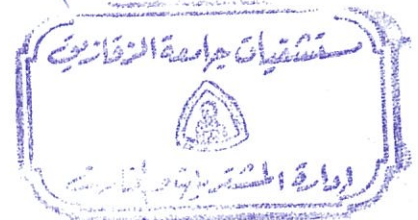 مستشفيات جامعة الزقازيق
إدارة المشتريات